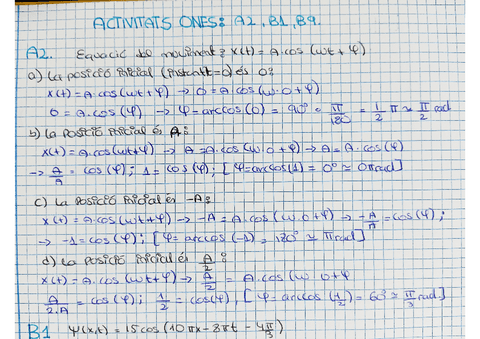 ACTIVITATS ONES: A2, B1, B9.
A2. Equació de moviment: x(t) = A·cos(ωt + φ)
a) La posició inicial (instant t=0) és 0:
x(t) = A·cos(ωt + φ) → 0 = A·cos(ω·0 + φ)
0 = A·cos(φ) → φ = arccos(0) = 90° · π/180 = 1/2 π ≃ π/2 rad
b) La posició inicial és A:
x(t) = A·cos(ωt + φ) → A = A·cos(ω·0 + φ) → A = A·cos(φ)
→ A/A = cos(φ); 1 = cos(φ); [φ = arccos(1) = 0° ≃ 0π rad]
c) La posició inicial és -A:
x(t) = A·cos(ωt + φ) → -A = A·cos(ω·0 + φ) → -A/A = cos(φ);
→ -1 = cos(φ); [φ = arccos(-1) = 180° ≃ π rad]
d) La posició inicial és A/2:
x(t) = A·cos(ωt + φ) → A/2 = A·cos(ω·0 + φ
A/2·A = cos(φ); 1/2 = cos(φ), [φ = arccos(1/2) = 60° ≃ π/3 rad]
B1 Ψ(x,t) = 15 cos(10πx - 8πt - 4π/3)